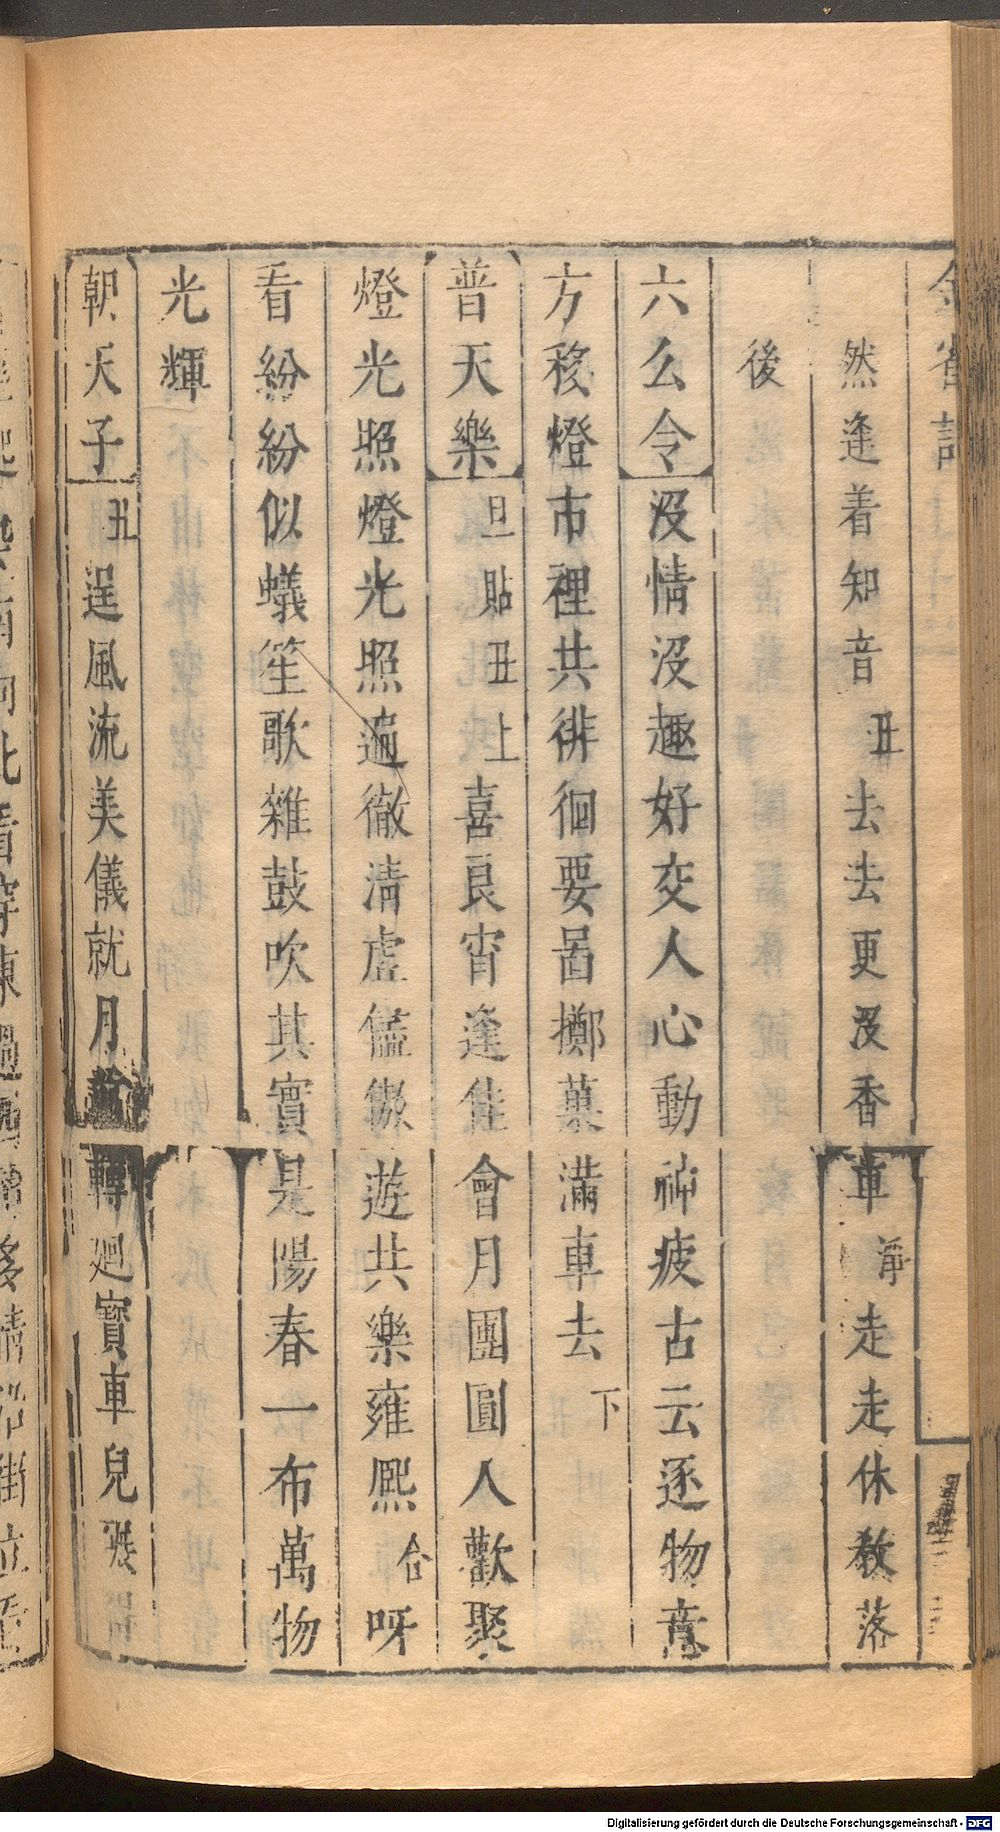 然逢着知音丑去去更沒香車淨走走休教落
後
六么令沒情沒趣好交人心動神疲古云逐物意
方移燈市裡共徘徊要啚擲菓滿車去下
普天樂旦貼丑上喜良宵逢佳會月團圓人歡聚
燈光照燈光照遍徹清虛儘遨遊共樂雍熙合呀
看紛紛似蟻笙歌雜鼓吹其實是陽春一布萬物
光輝
朝天子丑逞風流美儀就月輪轉廻寳車兒
Digitalisierung gefördert durch die Deutsche Forschungsgemeinschaft - DFG